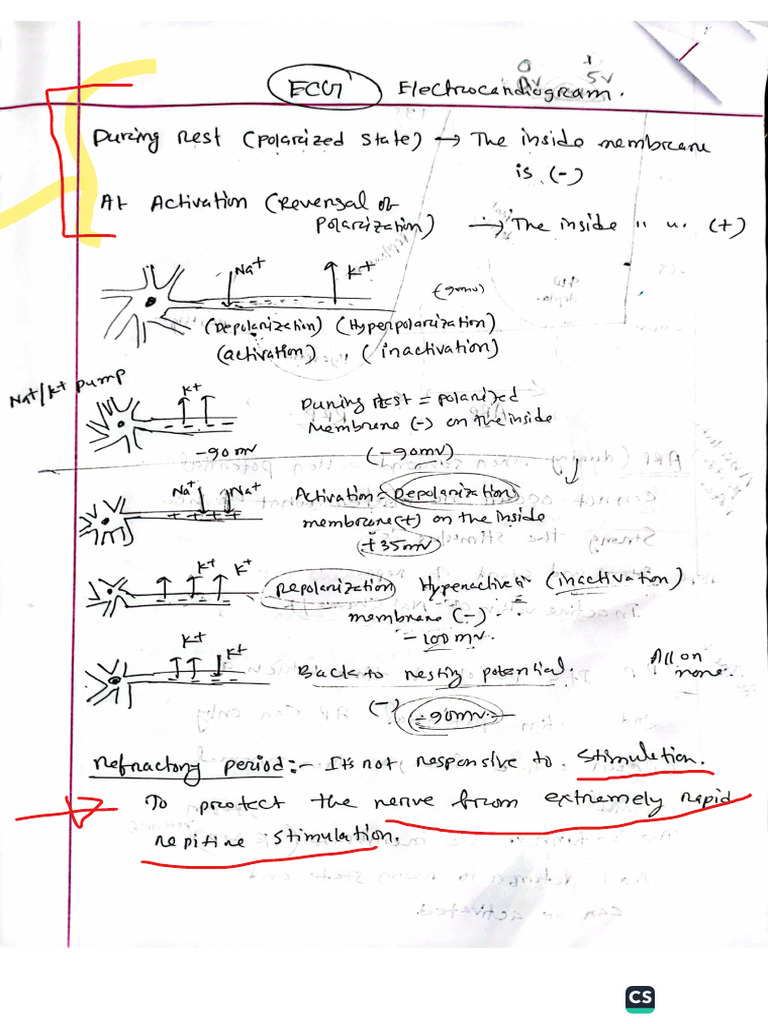 0 +
0v 5v
ECG Electrocardiogram.
During Rest (Polarized State) → The inside membrane
is (-)
At Activation (Reversal of
Polarization) → The inside " " (+)
Na+ K+
(-90mv)
(Depolarization) (Hyperpolarization)
(activation), (inactivation)
Na+/K+ pump
K+
During Rest = polarized
Membrane (-) on the inside
-90mv (-90mv)
Na+ Na+
Activation = Depolarization
membrane (+) on the inside
+35mv
K+ K+
Repolarization (inactivation)
membrane (-)
-100mv.
K+ K+
Back to resting potential. All or
none.
(-) -90mv
Refractory period:- It's not responsive to Stimuletion.
To protect the nerve from extremely rapid
repitive stimulation.
CS